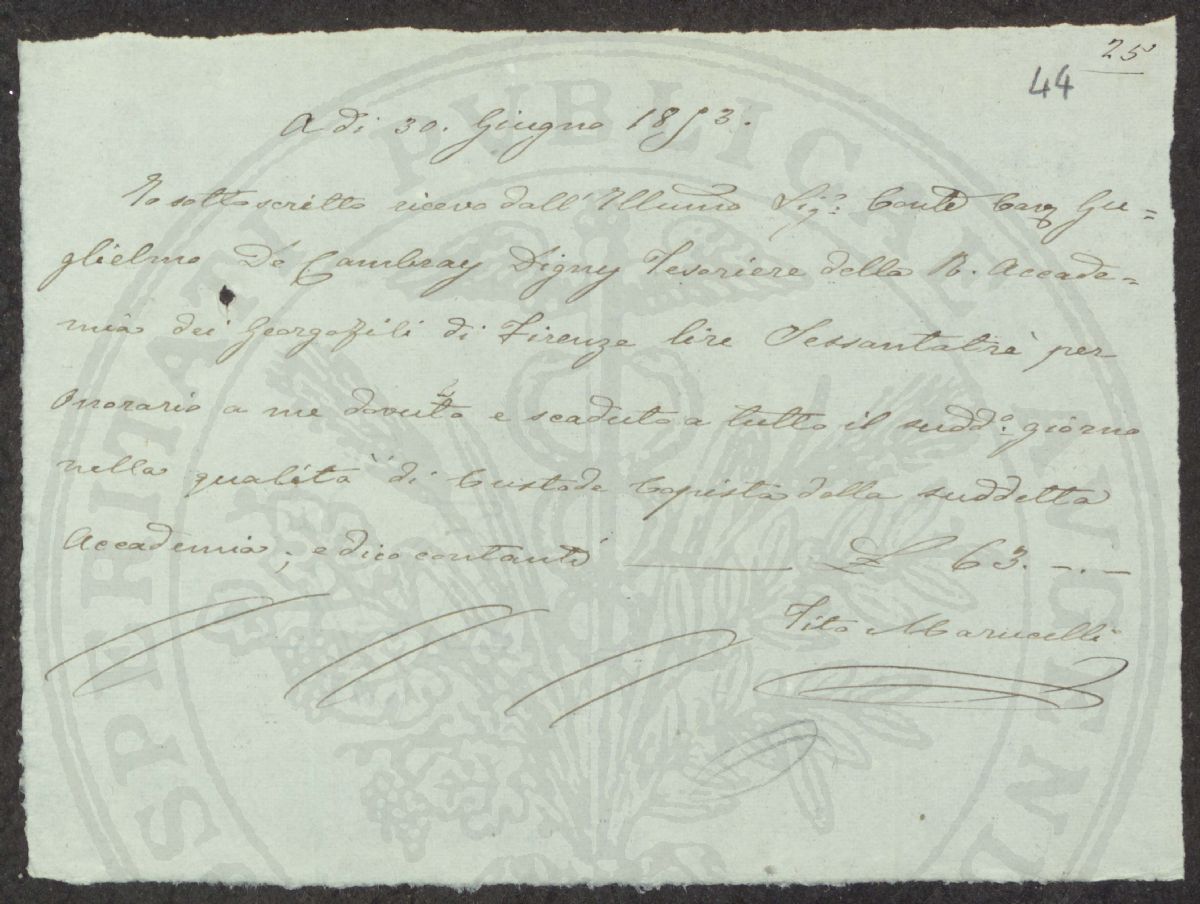 25
44
A dì 30. Giugno 1853.
Io sottoscritto ricevo dall' Illumo Sigr. Conte Cav Gu=
glielmo De Cambray Digny Tesoriere della R. Accade=
mia dei Georgofili di Firenze lire Sessantatrè per
Onorario a me dovuto e scaduto a tutto il suddo. giorno
nella qualità di Custode Copista della suddetta
Accademia; e dico contanti ——— £ 63.-.-
Tito Marucelli
PROSPERITATI PUBLICAE AUGENDAE